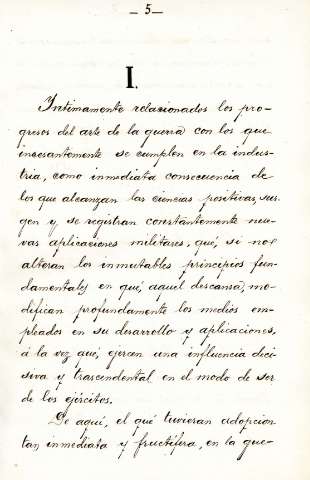 — 5 —
I.
Intimamente relacionados los pro-
gresos del arte de la guerra con los que
incesantemente se cumplen en la indus-
tria, como inmediata consecuencia de
los que alcanzan las ciencias positivas, sur-
gen y se registran constántemente nue-
vas aplicaciones militares, qué, si no
alteran los inmutables principios fun-
damentales en qué, aquél descansa, mo-
difican profundamente los medios em-
pleados en su desarrollo y aplicaciones,
á la vez qué, ejercen una influencia deci-
siva y trascendental en el modo de ser
de los ejércitos.
De aquí, el qué tuvieran adopcion
tan inmediata y fructífera, en la gue-